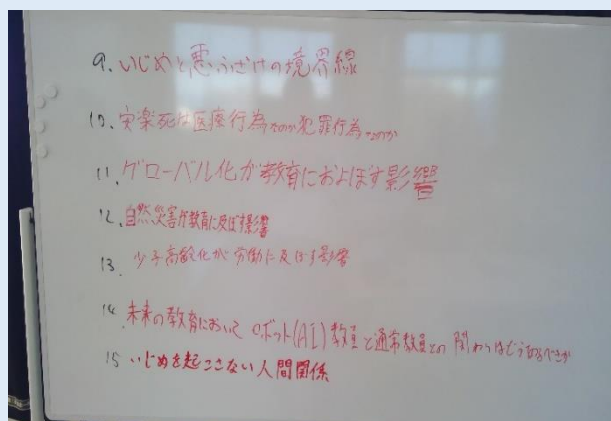 9. いじめと悪ふざけの境界線
10. 安楽死は医療行為なのか犯罪行為なのか
11. グローバル化が教育におよぼす影響
12. 自然災害が教育に及ぼす影響
13. 少子高齢化が労働に及ぼす影響
14. 未来の教育において ロボット(AI)教員と通常教員との関わりはどうあるべきか
15 いじめを起こさない人間関係